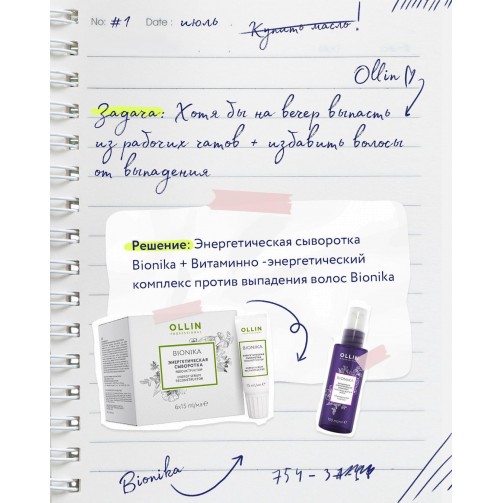 No: #1 Date: июль Купить масло!
Ollin
Задача: Хотя бы на вечер выпасть
из рабочих чатов + избавить волосы
от выпадения
Решение: Энергетическая сыворотка
Bionika + Витаминно-энергетический
комплекс против выпадения волос Bionika
OLLIN
PROFESSIONAL
BIONIKA
ЭНЕРГЕТИЧЕСКАЯ
СЫВОРОТКА
РЕКОНСТРУКТОР
ENERGY SERUM
RECONSTRUCTOR
6x15 ml/мл℮
OLLIN
BIONIKA
15 ml/мл℮
OLLIN
BIONIKA
Bionika
754-3